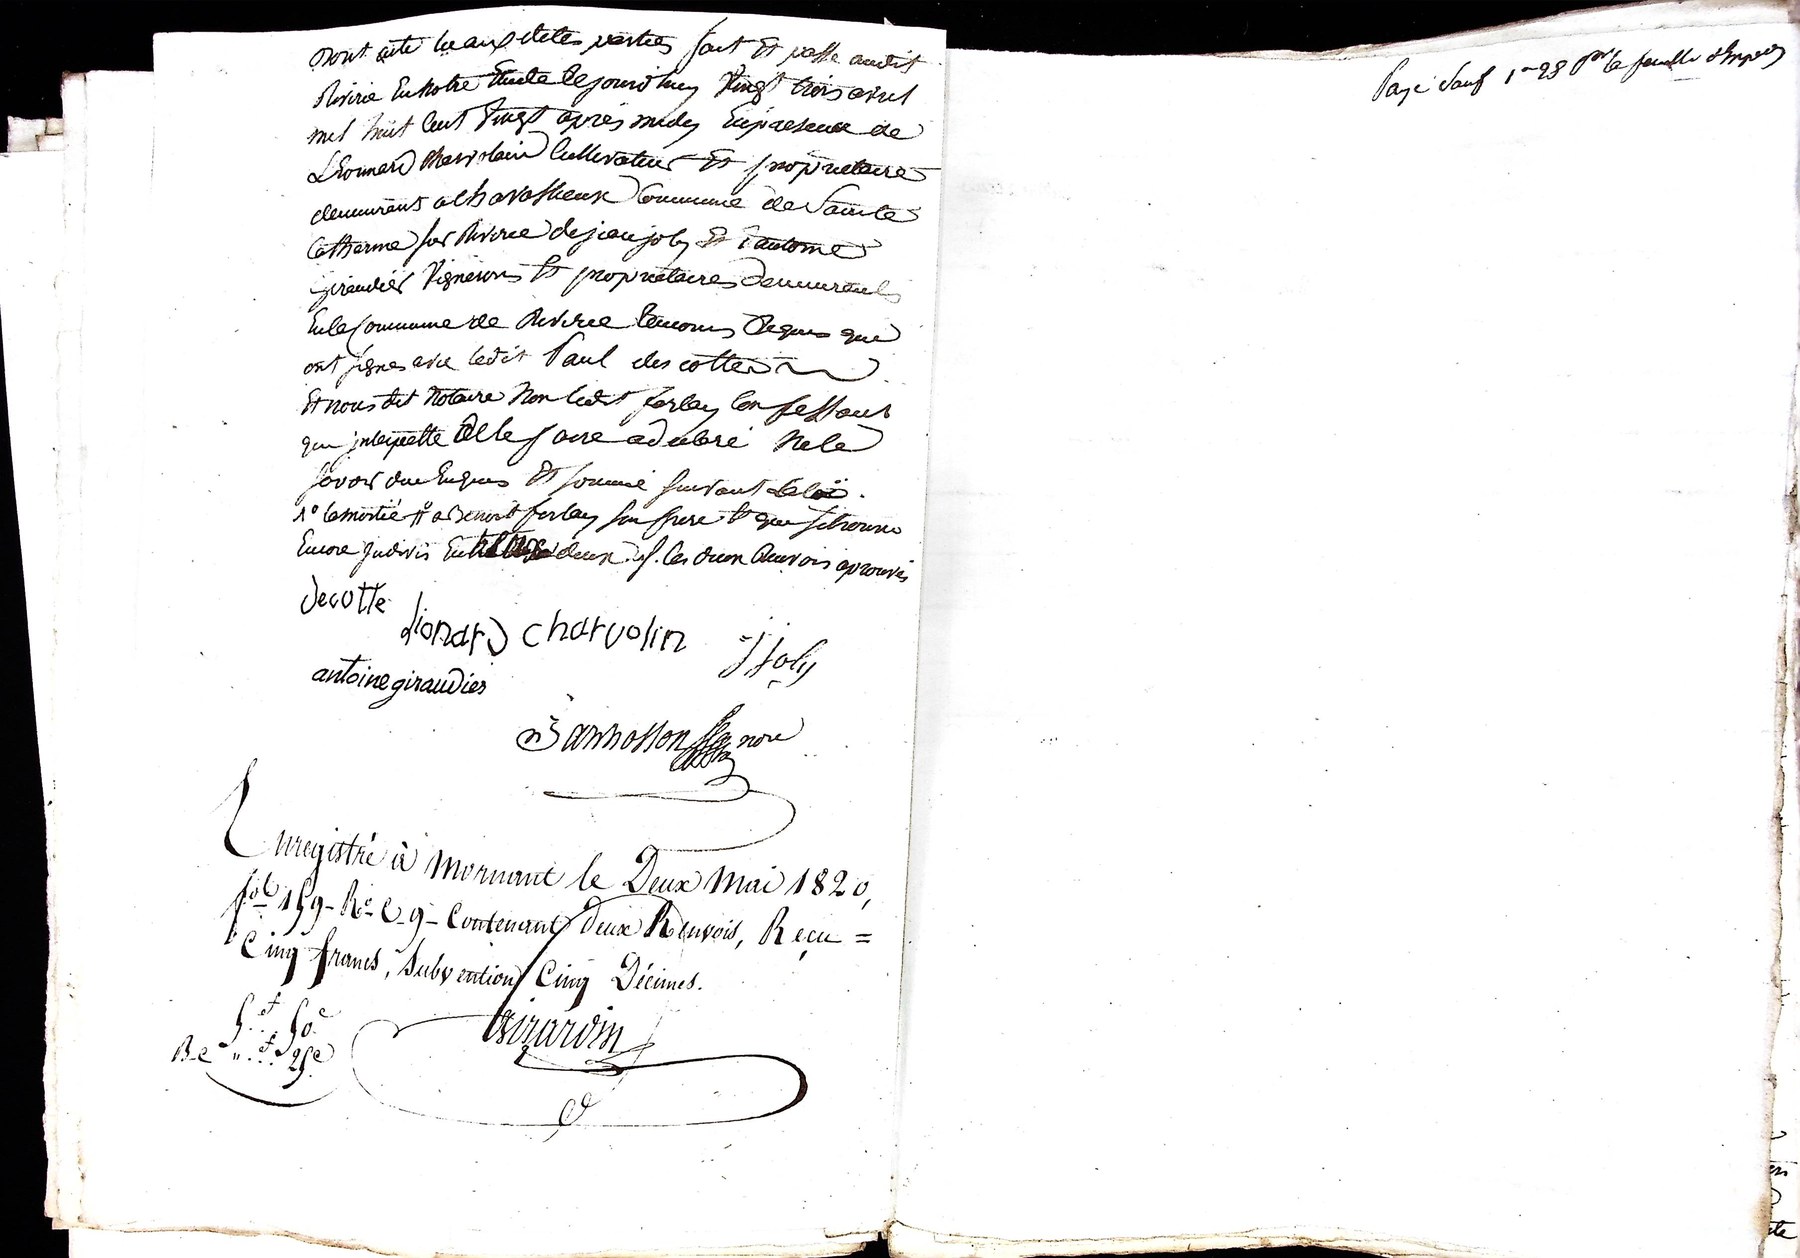 Dont acte lu aux dites parties fait Et passé audit
Riverie En notre Etude Ce jourd'huy Vingt trois avril
mil huit Cent Vingt après midy En présence de
Léonard Charvolain Cultivateur Et propriétaire
demeurant a Chavassieux Commune de Sainte
Catherine sur Riverie de jean joly Et d'antoine
giraudier Vignerons Et propriétaires demeurants
En la Commune de Riverie temoins Requis qui
ont signes avec ledit Paul des cottes
Et nous dit Notaire Non ledit ferley
que interpellé de le faire a déclaré Ne le
savoir Enquis Et sommé suivant la loi.
1º la moitié a Benoit ferley son frere Et qui se trouve
Encore indivis Entre deux les deux Renvois aprouvés
decotte
Lionard charvolin jjoly
antoine giraudier
nore
Enregistré à Mornant le Deux Mai 1820,
fol 159 Ro C 9 Contenant Deux Renvois, Reçu =
Cinq francs, Subvention Cinq Décimes.
5 f 50 c
Girardin
25 c
Payé Sauf la feuille